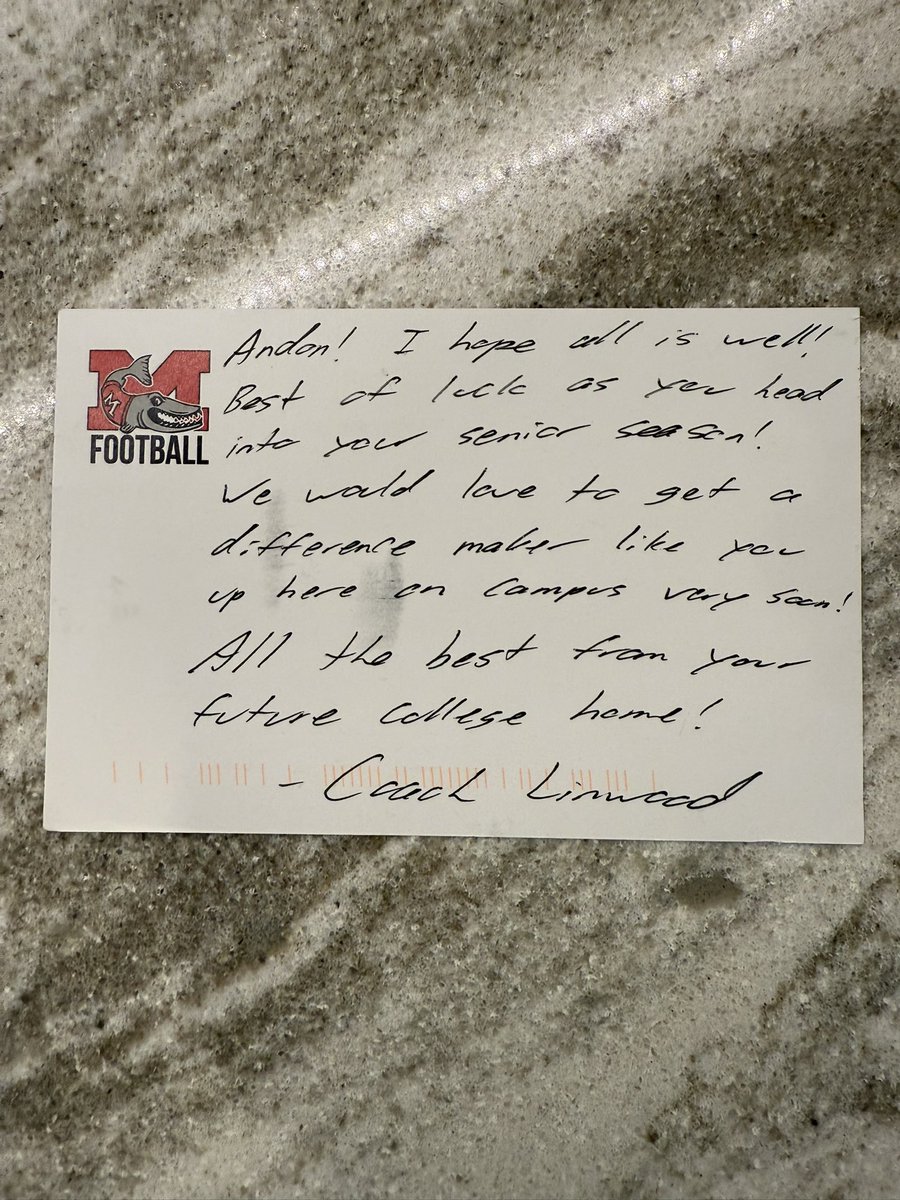 M
M
FOOTBALL
Andon! I hope all is well!
Best of luck as you head
into your senior season!
We would love to get a
difference maker like you
up here on campus very soon!
All the best from your
future college home!
- Coach Linwood